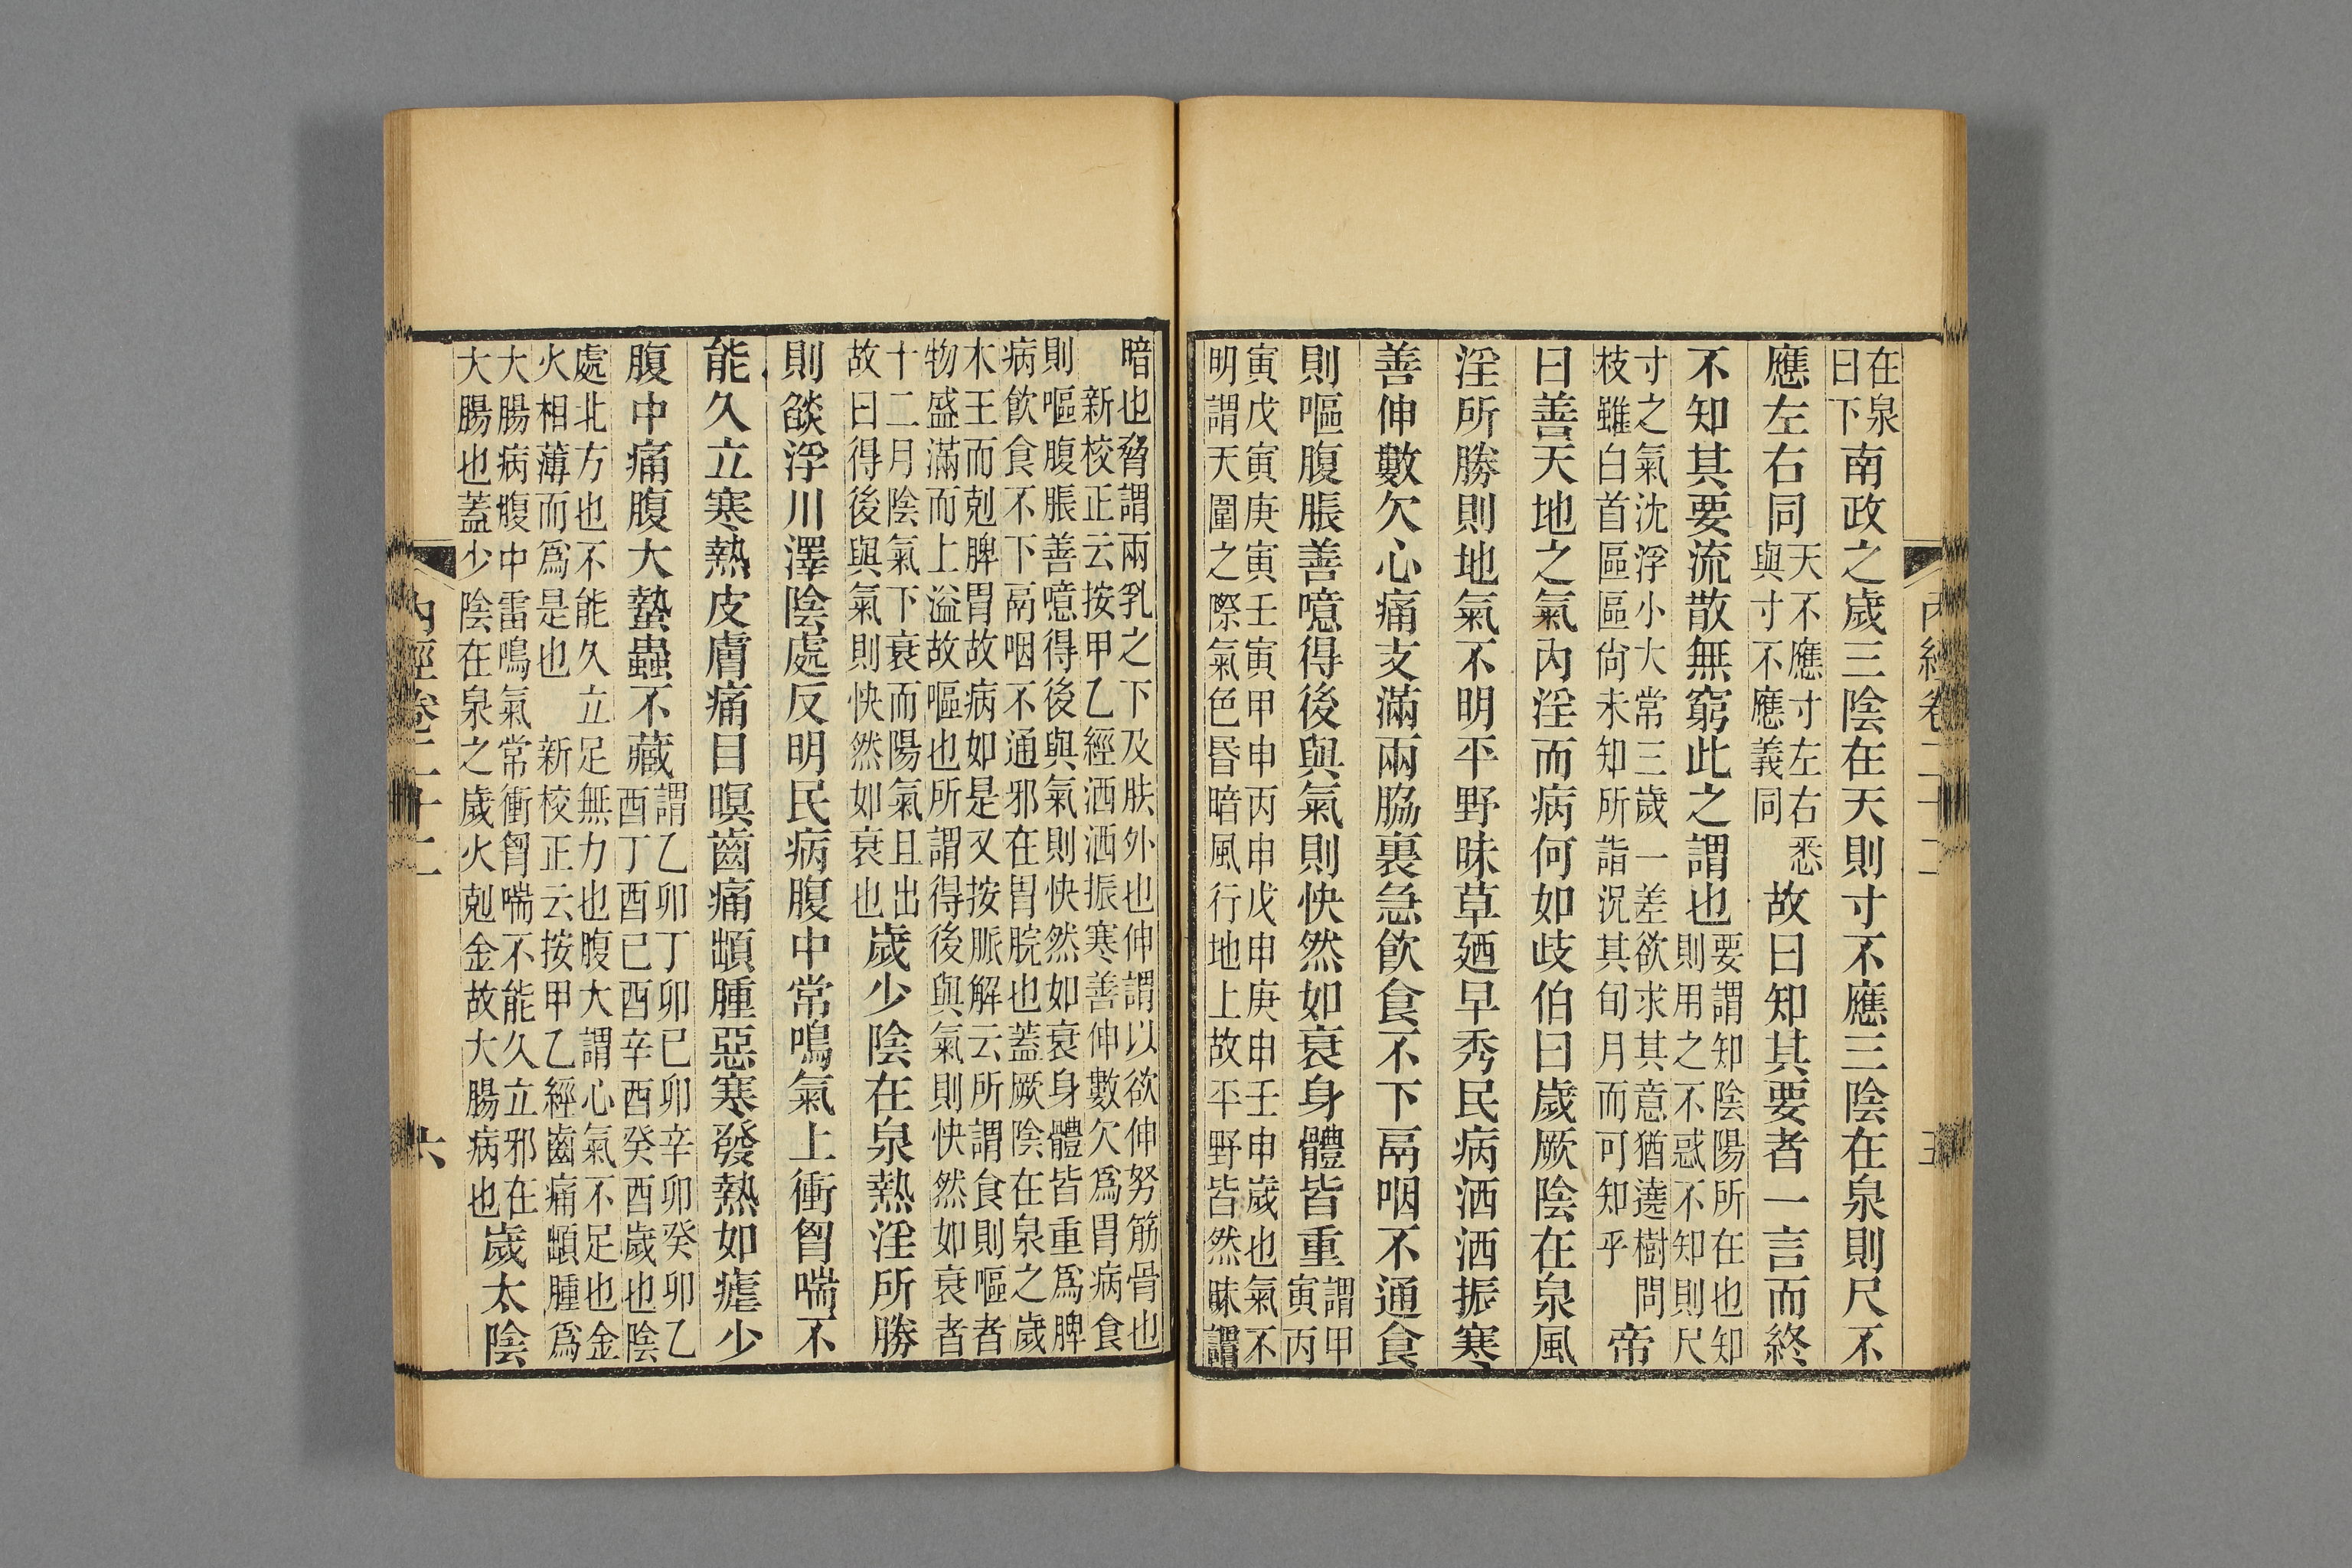 在泉曰下南政之歲三陰在天則寸不應三陰在泉則尺不
應左右同天不應寸左右悉與寸不應義同故曰知其要者一言而終
不知其要流散無窮此之謂也要謂知陰陽所在也知則用之不惑不知則尺
寸之氣沈浮小大常三歲一差欲求其意猶遶樹問枝雖白首區區尙未知所詣況其旬月而可知乎帝
曰善天地之氣內淫而病何如歧伯曰歲厥陰在泉風
淫所勝則地氣不明平野昧草廼早秀民病洒洒振寒
善伸數欠心痛支滿兩脇裏急飮食不下鬲咽不通食
則嘔腹脹善噫得後與氣則快然如衰身體皆重謂甲寅丙
寅戊寅庚寅壬寅甲申丙申戊申庚申壬申歲也氣不明謂天圍之際氣色昏暗風行地上故平野皆然昧謂
內經卷二十二
五
暗也脅謂兩乳之下及胠外也伸謂以欲伸努筋骨也新校正云按甲乙經洒洒振寒善伸數欠爲胃病食
則嘔腹脹善噫得後與氣則快然如衰身體皆重爲脾病飮食不下鬲咽不通邪在胃脘也蓋厥陰在泉之歲
木王而剋脾胃故病如是又按脈解云所謂食則嘔者物盛滿而上溢故嘔也所謂得後與氣則快然如衰者
十二月陰氣下衰而陽氣且出故曰得後與氣則快然如衰也歲少陰在泉熱淫所勝
則燄浮川澤陰處反明民病腹中常鳴氣上衝胷喘不
能久立寒熱皮膚痛目暝齒痛䪼腫惡寒發熱如瘧少
腹中痛腹大蟄蟲不藏謂乙卯丁卯已卯辛卯癸卯乙酉丁酉已酉辛酉癸酉歲也陰
處北方也不能久立足無力也腹大謂心氣不足也金火相薄而爲是也新校正云按甲乙經齒痛䪼腫爲
大腸病腹中雷鳴氣常衝胷喘不能久立邪在大腸也蓋少陰在泉之歲火剋金故大腸病也歲太陰
內經卷二十二
六